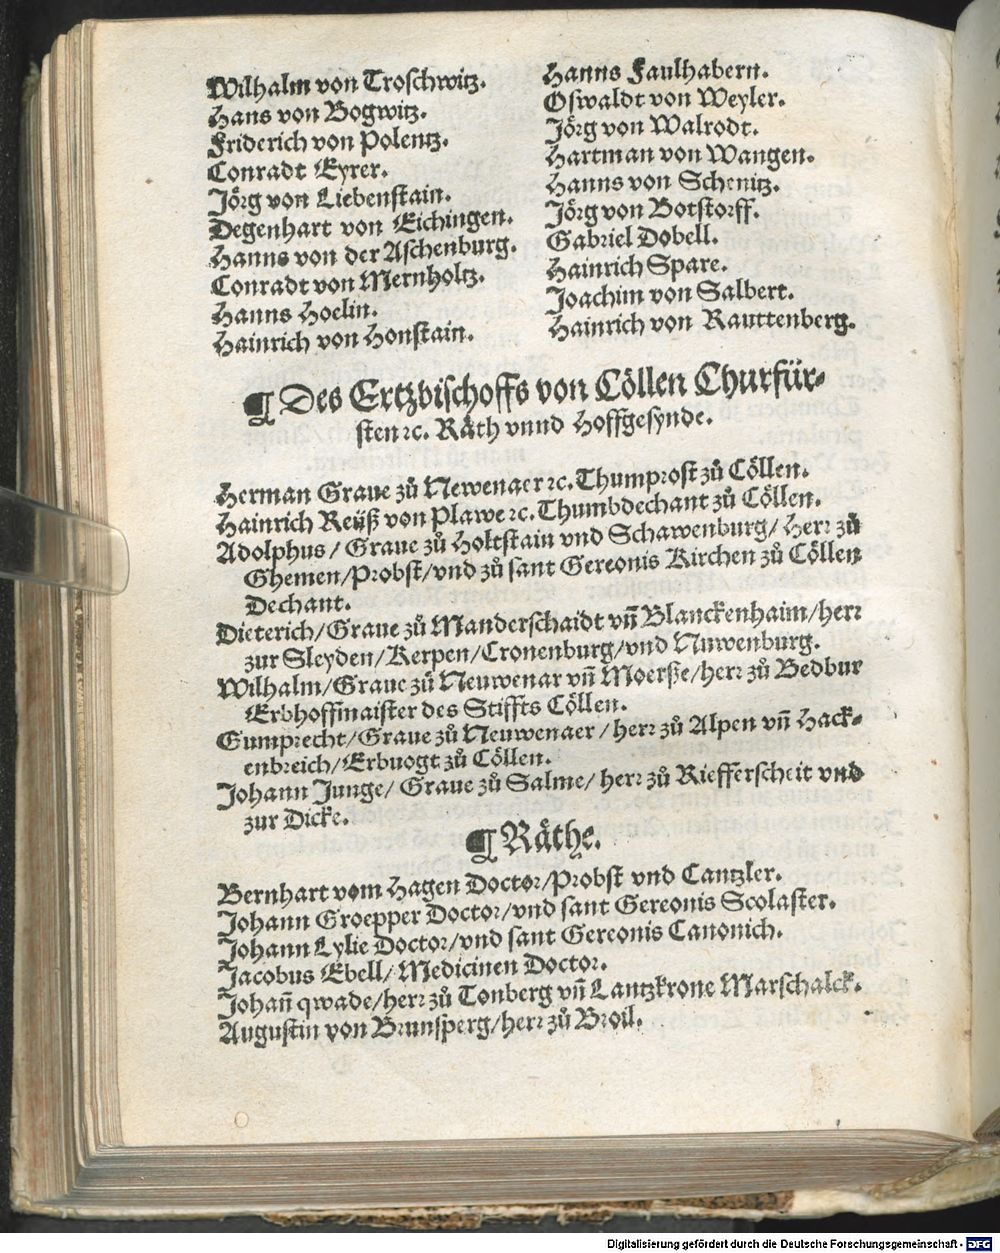 Wilhalm von Troschwitz.
Hans von Bogwitz.
Friderich von Polentz.
Conradt Eyrer.
Jörg von Liebenstain.
Degenhart von Eichingen.
Hanns von der Aschenburg.
Conradt von Mernholtz.
Hanns Hoelin.
Hainrich von Honstain.
Hanns Faulhabern.
Oswaldt von Weyler.
Jörg von Walrodt.
Hartman von Wangen.
Hanns von Schenitz.
Jörg von Botstorff.
Gabriel Dobell.
Hainrich Spare.
Joachim von Salbert.
Hainrich von Rauttenberg.
¶ Des Ertzbischoffs von Cöllen Churfür-
sten ꝛc. Räth vnnd Hoffgesynde.
Herman Graue zů Newenaer ꝛc. Thumprost zů Cöllen.
Hainrich Reüß von Plawe ꝛc. Thumbdechant zů Cöllen.
Adolphus / Graue zů Holtstain vnd Schawenburg / Herr zů
Ghemen / Probst / vnd zů sant Gereonis Kirchen zů Cöllen
Dechant.
Dieterich / Graue zů Manderschaidt vñ Blanckenhaim / herr
zur Sleyden / Kerpen / Cronenburg / vnd Nuwenburg.
Wilhalm / Graue zů Neuwenar vñ Moerße / herr zů Bedbur
Erbhoffmaister des Stiffts Cöllen.
Gumprecht / Graue zů Neuwenaer / herr zů Alpen vñ Hack-
enbreich / Erbuogt zů Cöllen.
Johann Junge / Graue zů Salme / herr zů Riefferscheit vnd
zur Dicke.
¶ Räthe.
Bernhart vom Hagen Doctor / Probst vnd Cantzler.
Johann Groepper Doctor / vnd sant Gereonis Scolaster.
Johann Lylie Doctor / vnd sant Gereonis Canonich.
Jacobus Ebell / Medicinen Doctor.
Johañ qwade / herr zů Tonberg vñ Lantzkrone Marschalck.
Augustin von Brunsperg / herr zů Broil.
Digitalisierung gefördert durch die Deutsche Forschungsgemeinschaft - DFG